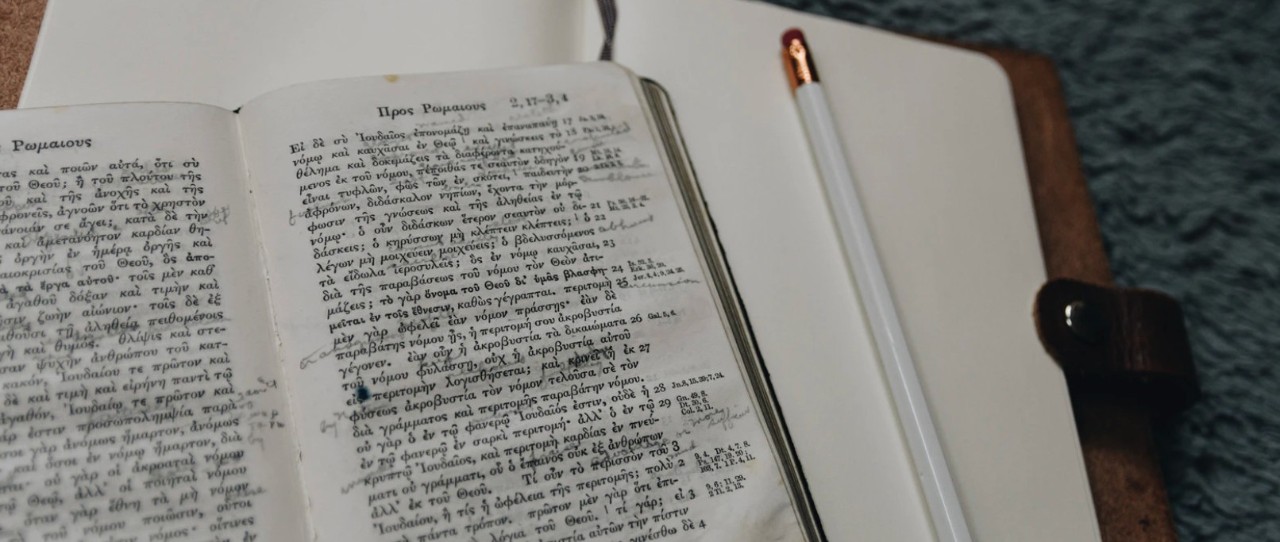 Ρωμαιους
τας καὶ ποιῶν αὐτά, ὅτι σὺ
τοῦ Θεοῦ; ἢ τοῦ πλούτου τῆς
καὶ τῆς ἀνοχῆς καὶ τῆς
φρονεῖς, ἀγνοῶν ὅτι τὸ χρηστὸν
άνοιάν σε ἄγει; κατὰ δὲ τὴν
καὶ ἀμετανόητον καρδίαν θη-
ὀργὴν ἐν ἡμέρᾳ ὀργῆς καὶ
αιοκρισίας τοῦ Θεοῦ, ὃς ἀπο-
τὰ ἔργα αὐτοῦ· τοῖς μὲν καθ
ἀγαθοῦ δόξαν καὶ τιμὴν καὶ
ζωὴν αἰώνιον· τοῖς δὲ ἐξ
τῇ ἀληθείᾳ πειθομένοις
καὶ θυμός. θλῖψις καὶ στε-
ψυχὴν ἀνθρώπου τοῦ κατ-
κακόν, Ἰουδαίου τε πρῶτον καὶ
δὲ καὶ τιμὴ καὶ εἰρήνη παντὶ τῷ
ἀγαθόν, Ἰουδαίῳ τε πρῶτον καὶ
ἐστιν προσωπολημψία παρὰ
γὰρ ἀνόμως ἥμαρτον, ἀνόμως
καὶ ὅσοι ἐν νόμῳ ἥμαρτον, διὰ
οὐ γὰρ οἱ ἀκροαταὶ νόμου
Θεῷ, ἀλλ' οἱ ποιηταὶ νόμου
ὅταν γὰρ ἔθνη τὰ μὴ νόμον
τοῦ νόμου ποιῶσιν, οὗτοι
νόμος· οἵτινες
Προς Ρωμαιους 2,17–3,4
Εἰ δὲ σὺ Ἰουδαῖος ἐπονομάζῃ καὶ ἐπαναπαύῃ 17
νόμῳ καὶ καυχᾶσαι ἐν Θεῷ καὶ γινώσκεις τὸ 18
θέλημα καὶ δοκιμάζεις τὰ διαφέροντα κατηχού-
μενος ἐκ τοῦ νόμου, πέποιθάς τε σεαυτὸν ὁδηγὸν 19
εἶναι τυφλῶν, φῶς τῶν ἐν σκότει, παιδευτὴν 20
ἀφρόνων, διδάσκαλον νηπίων, ἔχοντα τὴν μόρ-
φωσιν τῆς γνώσεως καὶ τῆς ἀληθείας ἐν τῷ
νόμῳ· ὁ οὖν διδάσκων ἕτερον σεαυτὸν οὐ δι- 21
δάσκεις; ὁ κηρύσσων μὴ κλέπτειν κλέπτεις; ὁ 22
λέγων μὴ μοιχεύειν μοιχεύεις; ὁ βδελυσσόμενος
τὰ εἴδωλα ἱεροσυλεῖς; ὃς ἐν νόμῳ καυχᾶσαι, 23
διὰ τῆς παραβάσεως τοῦ νόμου τὸν Θεὸν ἀτι-
μάζεις; τὸ γὰρ ὄνομα τοῦ Θεοῦ δι' ὑμᾶς βλασφη- 24
μεῖται ἐν τοῖς ἔθνεσιν, καθὼς γέγραπται. περιτομὴ 25
μὲν γὰρ ὠφελεῖ ἐὰν νόμον πράσσῃς· ἐὰν δὲ
παραβάτης νόμου ᾖς, ἡ περιτομή σου ἀκροβυστία
γέγονεν. ἐὰν οὖν ἡ ἀκροβυστία τὰ δικαιώματα 26 Gal. 5, 6.
τοῦ νόμου φυλάσσῃ, οὐχ ἡ ἀκροβυστία αὐτοῦ
εἰς περιτομὴν λογισθήσεται; καὶ κρινεῖ ἡ ἐκ 27
φύσεως ἀκροβυστία τὸν νόμον τελοῦσα σὲ τὸν
διὰ γράμματος καὶ περιτομῆς παραβάτην νόμου.
οὐ γὰρ ὁ ἐν τῷ φανερῷ Ἰουδαῖός ἐστιν, οὐδὲ ἡ 28 Jn. 8, 15. 39; 7, 24.
ἐν τῷ φανερῷ ἐν σαρκὶ περιτομή· ἀλλ' ὁ ἐν τῷ 29
κρυπτῷ Ἰουδαῖος, καὶ περιτομὴ καρδίας ἐν πνεύ-
ματι οὐ γράμματι, οὗ ὁ ἔπαινος οὐκ ἐξ ἀνθρώπων
ἀλλ' ἐκ τοῦ Θεοῦ. Τί οὖν τὸ περισσὸν τοῦ 3
Ἰουδαίου, ἢ τίς ἡ ὠφέλεια τῆς περιτομῆς; πολὺ 2
πάντα τρόπον. πρῶτον μὲν γὰρ ὅτι ἐπι-
λόγια τοῦ Θεοῦ. τί γάρ; εἰ 3
αὐτῶν τὴν πίστιν
γινέσθω δὲ 4